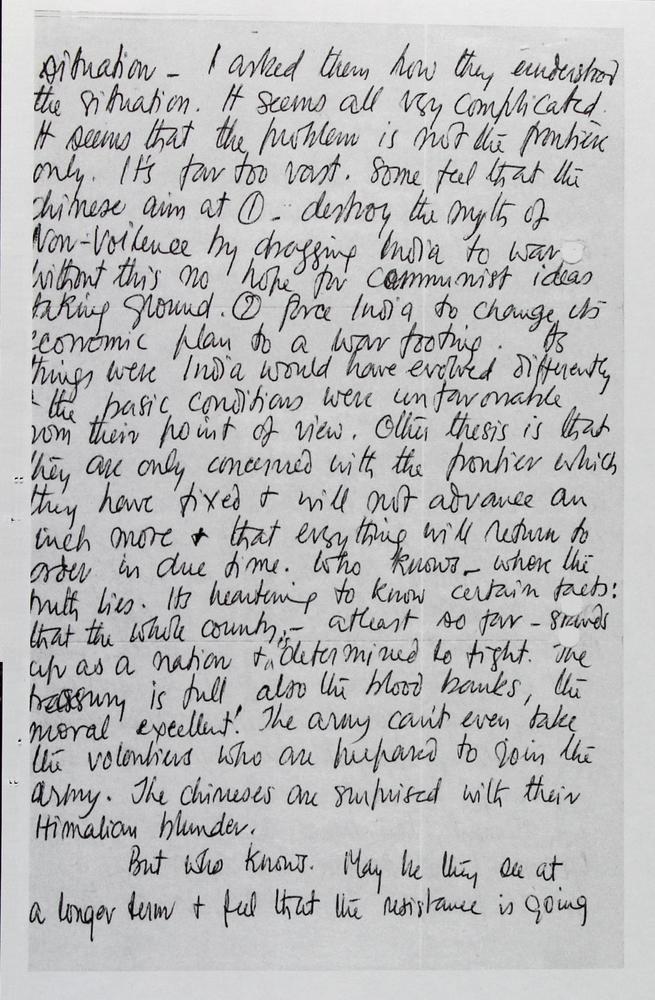 situation - I asked them how they eunderstood
the situation. It seems all vry complicated.
It seems that the problem is not the frontier
only. It's far too vast. Some feel that the
chinese aim at ① - destroy the myth of
Non-Voilence by dragging India to war
without this no hope for communist ideas
taking ground. ② force India to change its
economic plan to a war footing. As
things were India would have evolved differently
& the basic conditions were unfavorable
from their point of view. Other thesis is that
they are only concerned with the frontier which
they have fixed & will not advance an
inch more & that evrything will return to
order in due time. Who knows - where the
truth lies. Its heartening to know certain facts:
that the whole country, - atleast so far - stands
up as a nation & is determined to fight. The
treasury is full also the blood banks, the
moral excellent! The army can't even take
the volontiers who are prepared to join the
army. The chineses are surprised with their
Himalian blunder.
But who knows. May be they see at
a longer term & feel that the resistance is going